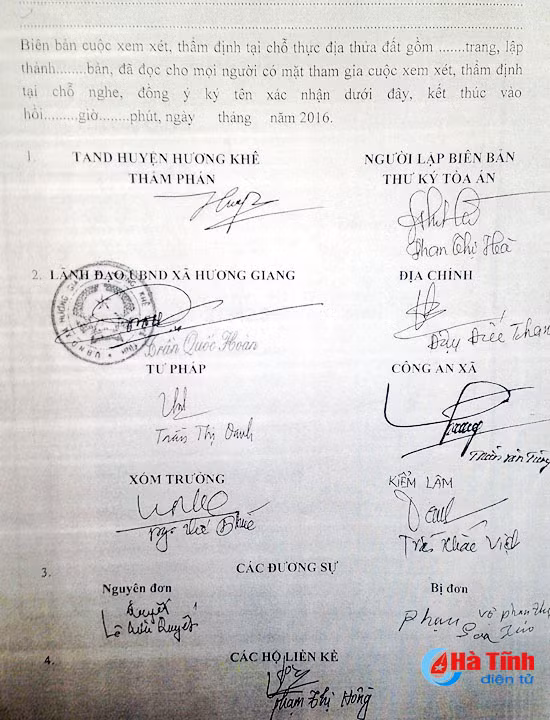 Biên bản cuộc xem xét, thẩm định tại chỗ thực địa thửa đất gồm .......trang, lập
thành........bản, đã đọc cho mọi người có mặt tham gia cuộc xem xét, thẩm định
tại chỗ nghe, đồng ý ký tên xác nhận dưới đây, kết thúc vào
hồi.........giờ........phút, ngày tháng năm 2016.
1. TAND HUYỆN HƯƠNG KHÊ NGƯỜI LẬP BIÊN BẢN
THẨM PHÁN THƯ KÝ TÒA ÁN
Phan Thị Hoà
2. LÃNH ĐẠO UBND XÃ HƯƠNG GIANG ĐỊA CHÍNH
Trần Quốc Hoàn
TƯ PHÁP CÔNG AN XÃ
Trần Thị Oanh
Trần Văn Tùng
XÓM TRƯỞNG KIỂM LÂM
Trần Khắc Việt
3. CÁC ĐƯƠNG SỰ
Nguyên đơn Bị đơn
Quyết
Quyết
Phạm
4. CÁC HỘ LIÊN KẾ
Phạm Thị Hồng
Hà Tĩnh
điện tử